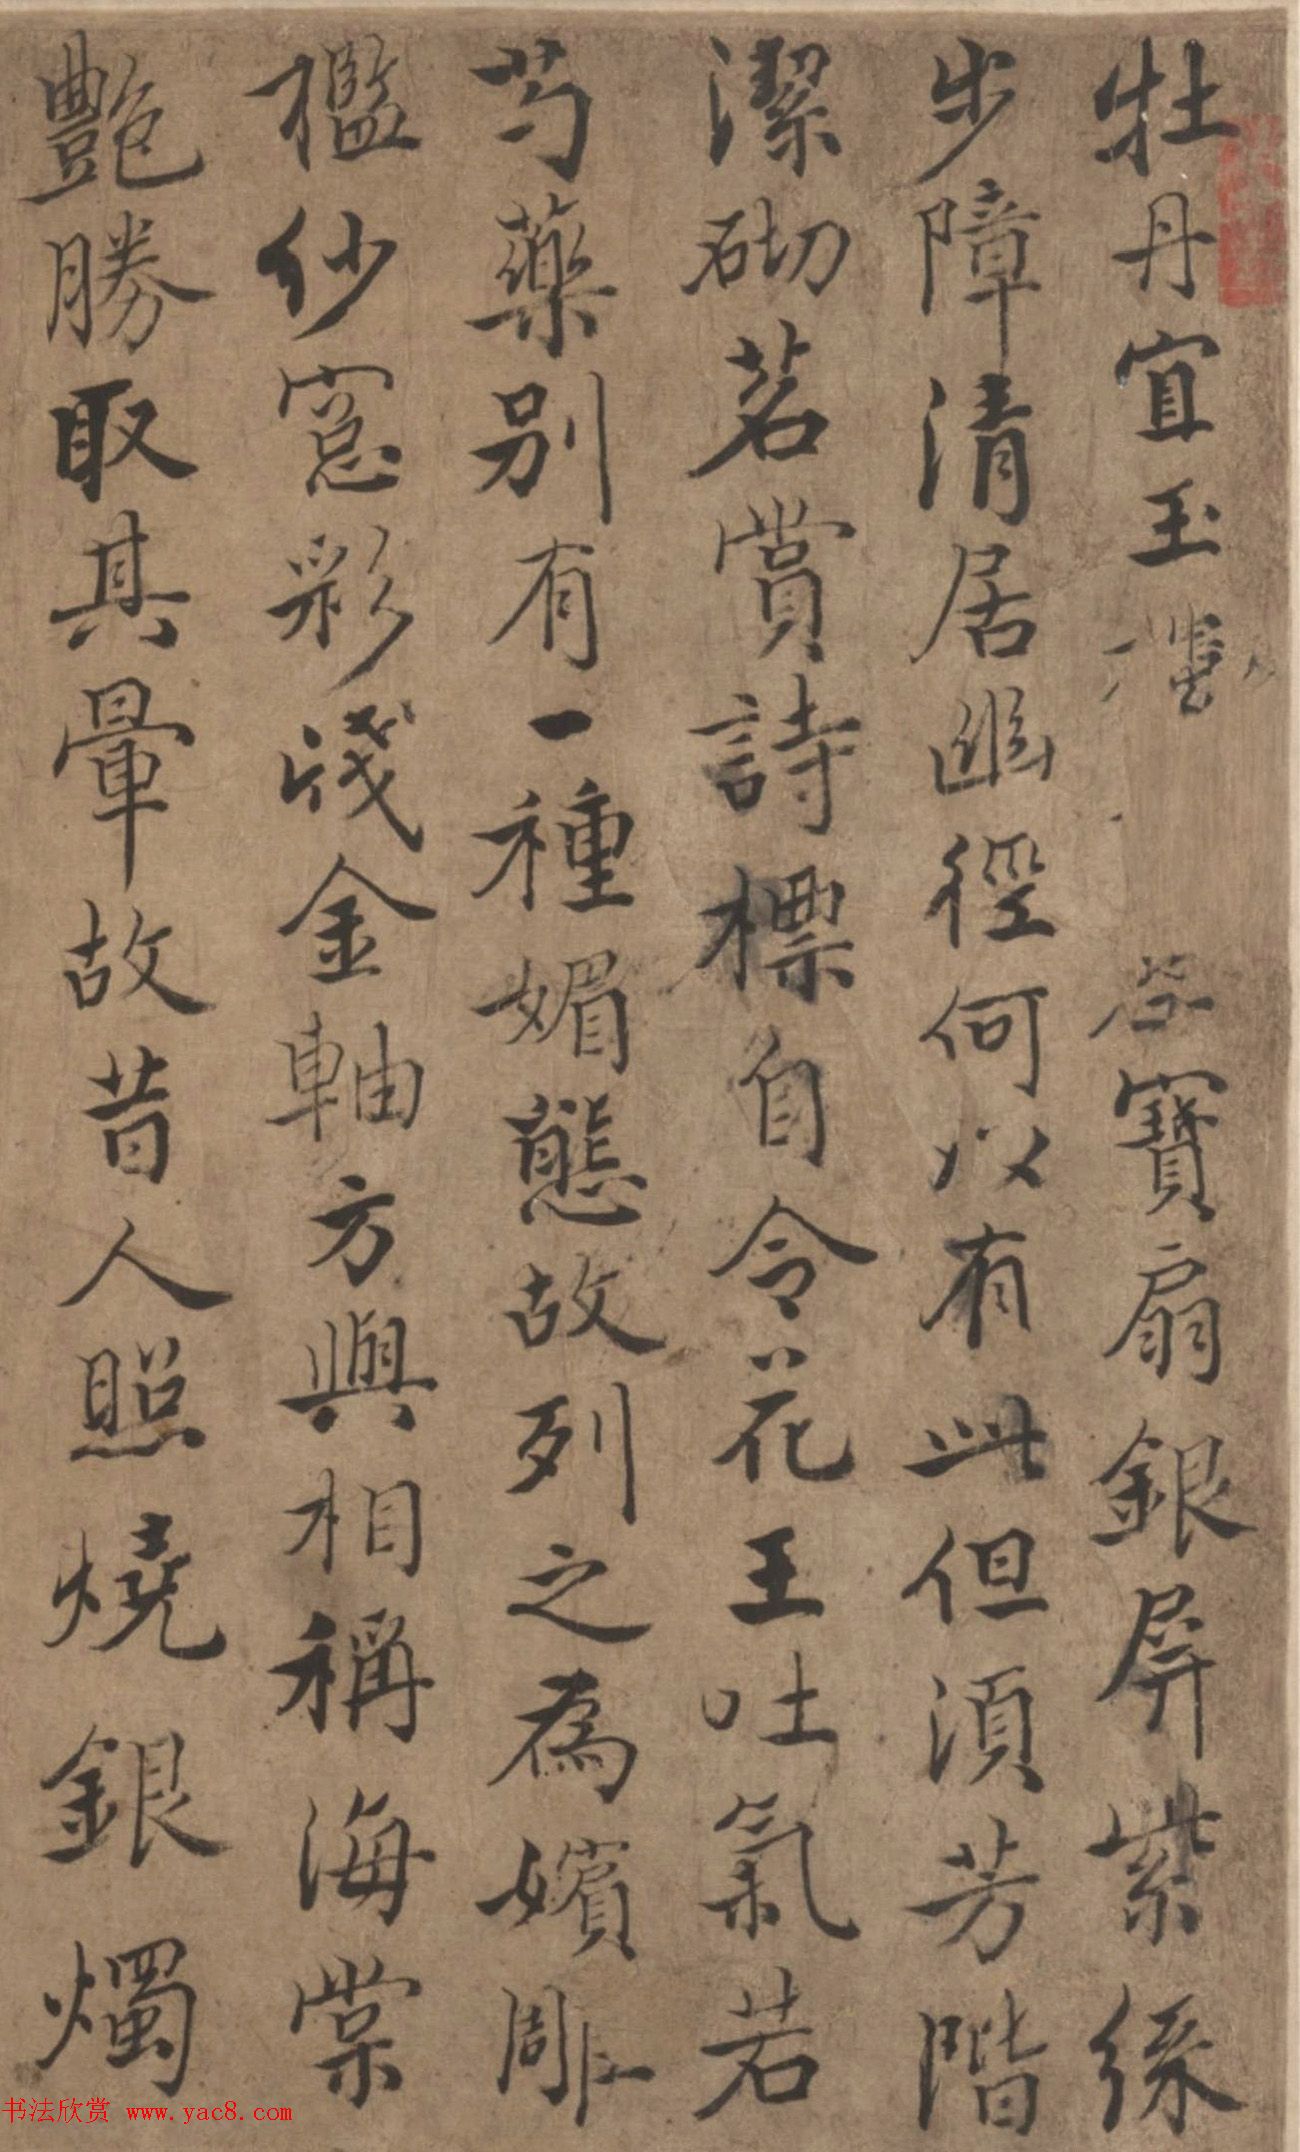 牡丹宜玉寶扇銀屏紫絲
步障清居幽徑何以有此但湏芳階
潔砌茗賞詩標自令花王吐氣若
芍藥别有一種媚態故列之為嬪雕
檻紗窓彩牋金軸方與相稱海棠
艷勝取其暈故昔人照燒銀燭
书法欣赏 www.yac8.com